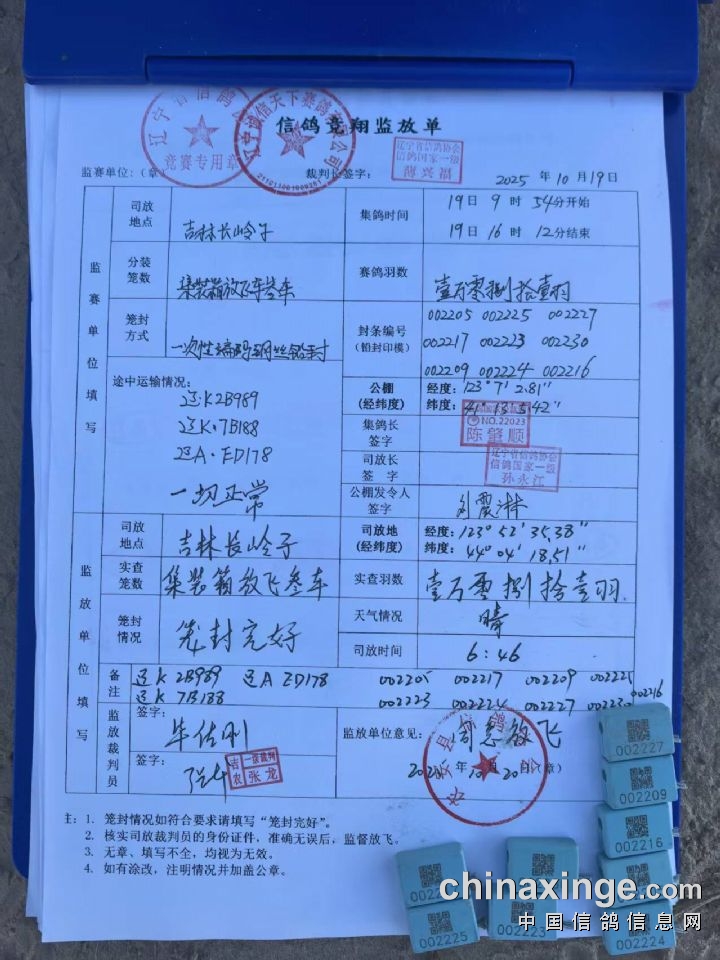 信鸽竞翔监放单
辽宁省信鸽
竞赛专用章
辽宁诚信天下赛鸽有限公司
监赛单位:(章)
裁判长签字:
辽宁省信鸽协会
信鸽国家一级
薄兴福
2025 年 10 月 19 日
监赛单位填写
司放地点
吉林长岭子
集鸽时间
19日 9 时 54分开始
19日 16 时 12分结束
分装笼数
集装箱放飞车叁车
赛鸽羽数
壹万零捌拾壹羽
笼封方式
封条编号
(铅封印模)
002205 002225 002227
002217 002223 002230
002209 002224 002216
途中运输情况:
辽K2B989
辽K·7B188
辽A·ED178
一切正常
公棚
(经纬度)
经度:123°7′2.81″
纬度:41°13′5.42″
集鸽长签字
NO.22023
陈肇顺
司放长签字
辽宁省信鸽协会
信鸽国家一级
孙永江
公棚发令人签字
监放单位填写
司放地点
吉林长岭子
司放地
(经纬度)
经度:123°52′35.38″
纬度:44°04′18.51″
实查笼数
集装箱放飞叁车
实查羽数
壹万零捌拾壹羽.
笼封情况
笼封完好
天气情况
晴
司放时间
6:46
备注
辽K 2B989 辽A ED178 002205 002217 002209 002225
辽K 7B188 002223 002224 002227 002230 002216
监放裁判员
签字:
签字:
吉一级裁判
农张龙
监放单位意见:
同意放飞
2025年10月20日(章)
注:1. 笼封情况如符合要求请填写“笼封完好”。
2. 核实司放裁判员的身份证件,准确无误后,监督放飞。
3. 无章、填写不全,均视为无效。
4. 如有涂改,注明情况并加盖公章。
002227
002209
002216
002225
002223
002224
chinaxinge.com
中国信鸽信息网